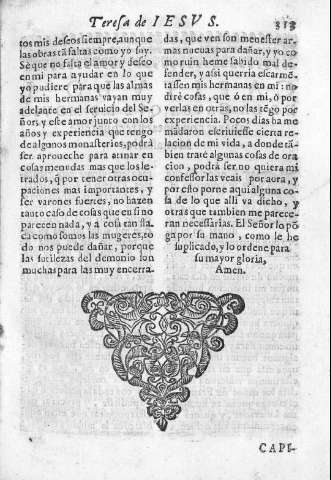 Teresa de IESVS. 
tos mis deseos siempre, aunque
las obras tã faltas como yo soy.
Sè que no falta el amor y deseo
en mi para ayudar en lo que
yo pudiere para que las almas
de mis hermanas vayan muy
adelante en el seruicio del Se-
ñor, y este amor junto con los
años y experiencia que tengo
de algunos monasterios, podrà
ser aproueche para atinar en
cosas menudas mas que los le-
trados, q̃ por tener otras ocu-
paciones mas importantes, y
ser varones fuertes, no hazen
tanto caso de cosas que en si no
parecen nada, y a cosa tan fla-
ca como somos las mugeres, to
do nos puede dañar, porque
las sutilezas del demonio son
muchas para las muy encerra-
das, que ven son menester ar-
mas nueuas para dañar, y yo co
mo ruin heme sabido mal de-
fender, y assi querria escarmẽ
tassen mis hermanas en mi: no
dirè cosas, que ò en mi, ò por
verlas en otras, no las tẽgo por
experiencia. Pocos dias ha me
mãdaron escriuiesse cierta re-
lacion de mi vida, a donde tã-
bien tratè algunas cosas de ora
cion, podrà ser no quiera mi
confessor las veais por aora, y
por esto porne aqui alguna co-
sa de lo que alli va dicho, y
otras que tambien me parece-
ran necessarias. El Señor lo põ
ga por su mano, como le he
suplicado, y lo ordene para
su mayor gloria,
Amen.
CAPI-